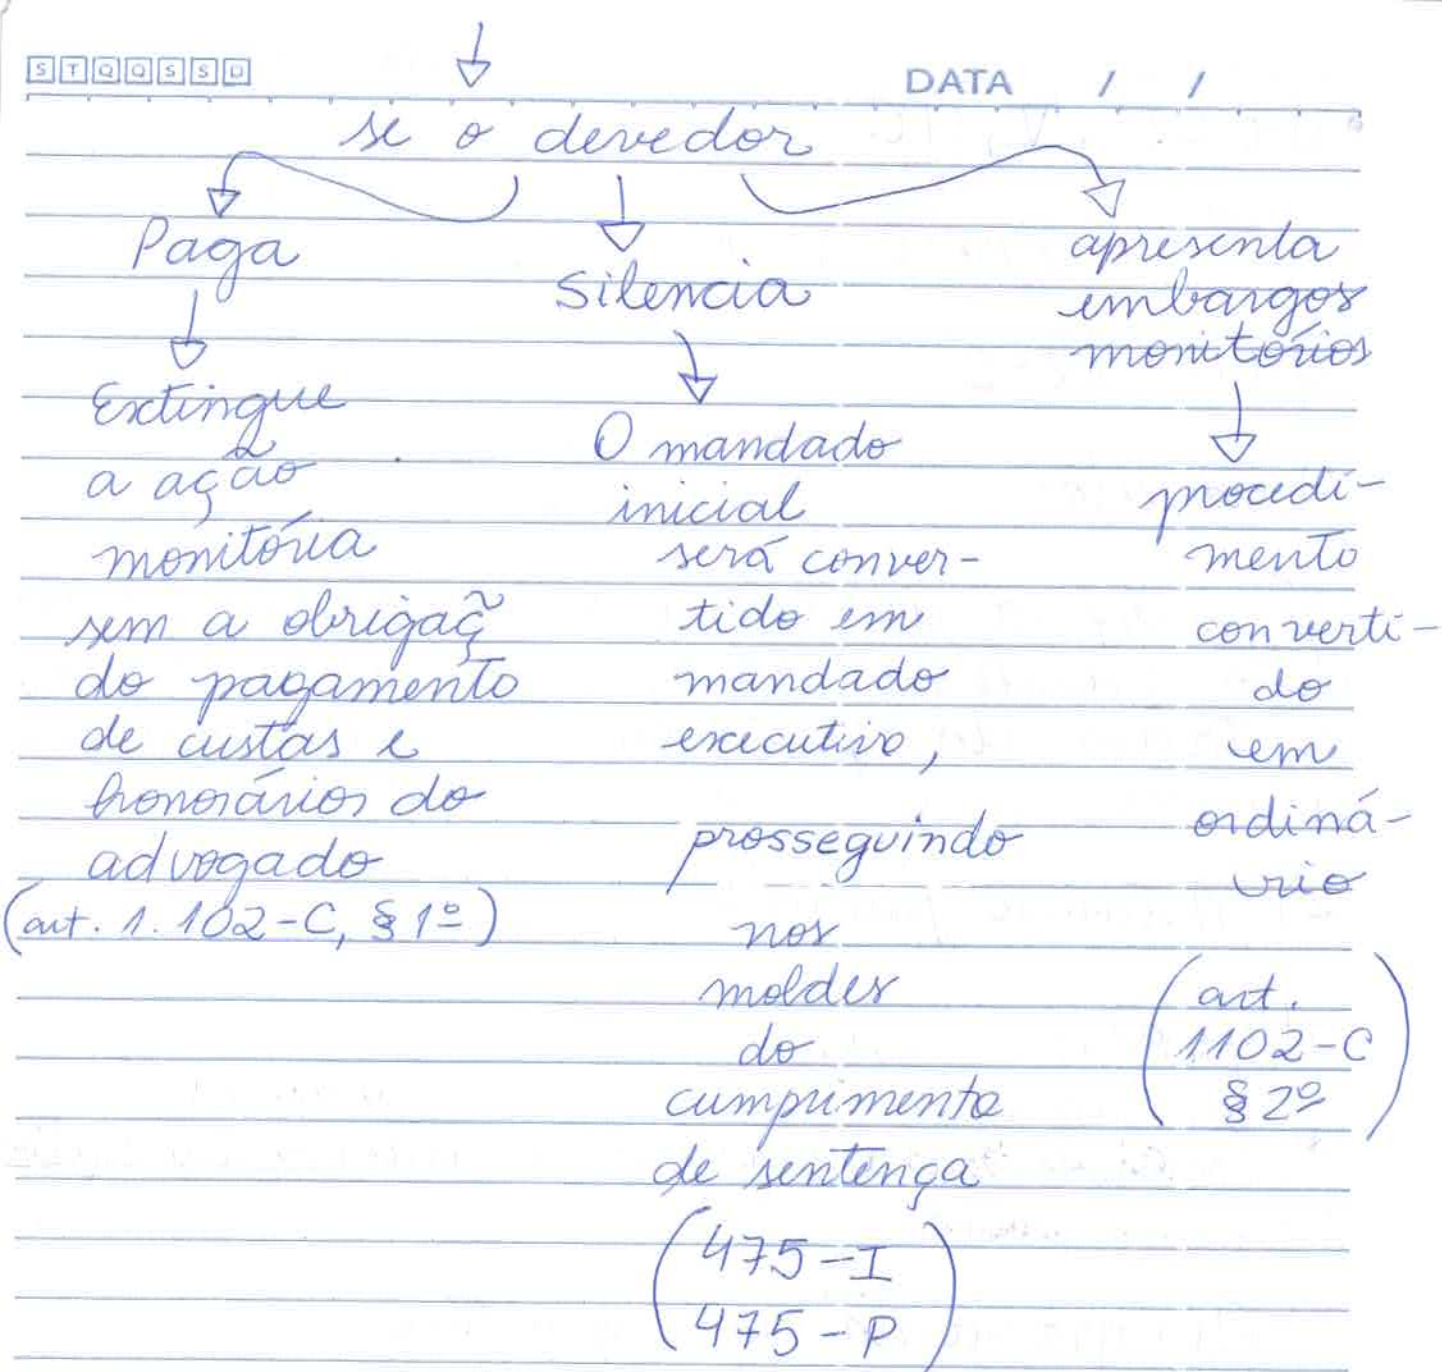 S T Q Q S S D
DATA / /
se o devedor
Paga
Extingue
a ação
monitória
sem a obrigaçã
do pagamento
de custas e
honorários do
advogado
(art. 1.102-C, § 1º)
Silencia
O mandado
inicial
será conver-
tido em
mandado
executivo,
prosseguindo
nos
moldes
do
cumprimento
de sentença
(475-I
475-P)
apresenta
embargos
monitórios
procedi-
mento
converti-
do
em
ordiná-
rio
(art.
1102-C
§ 2º)